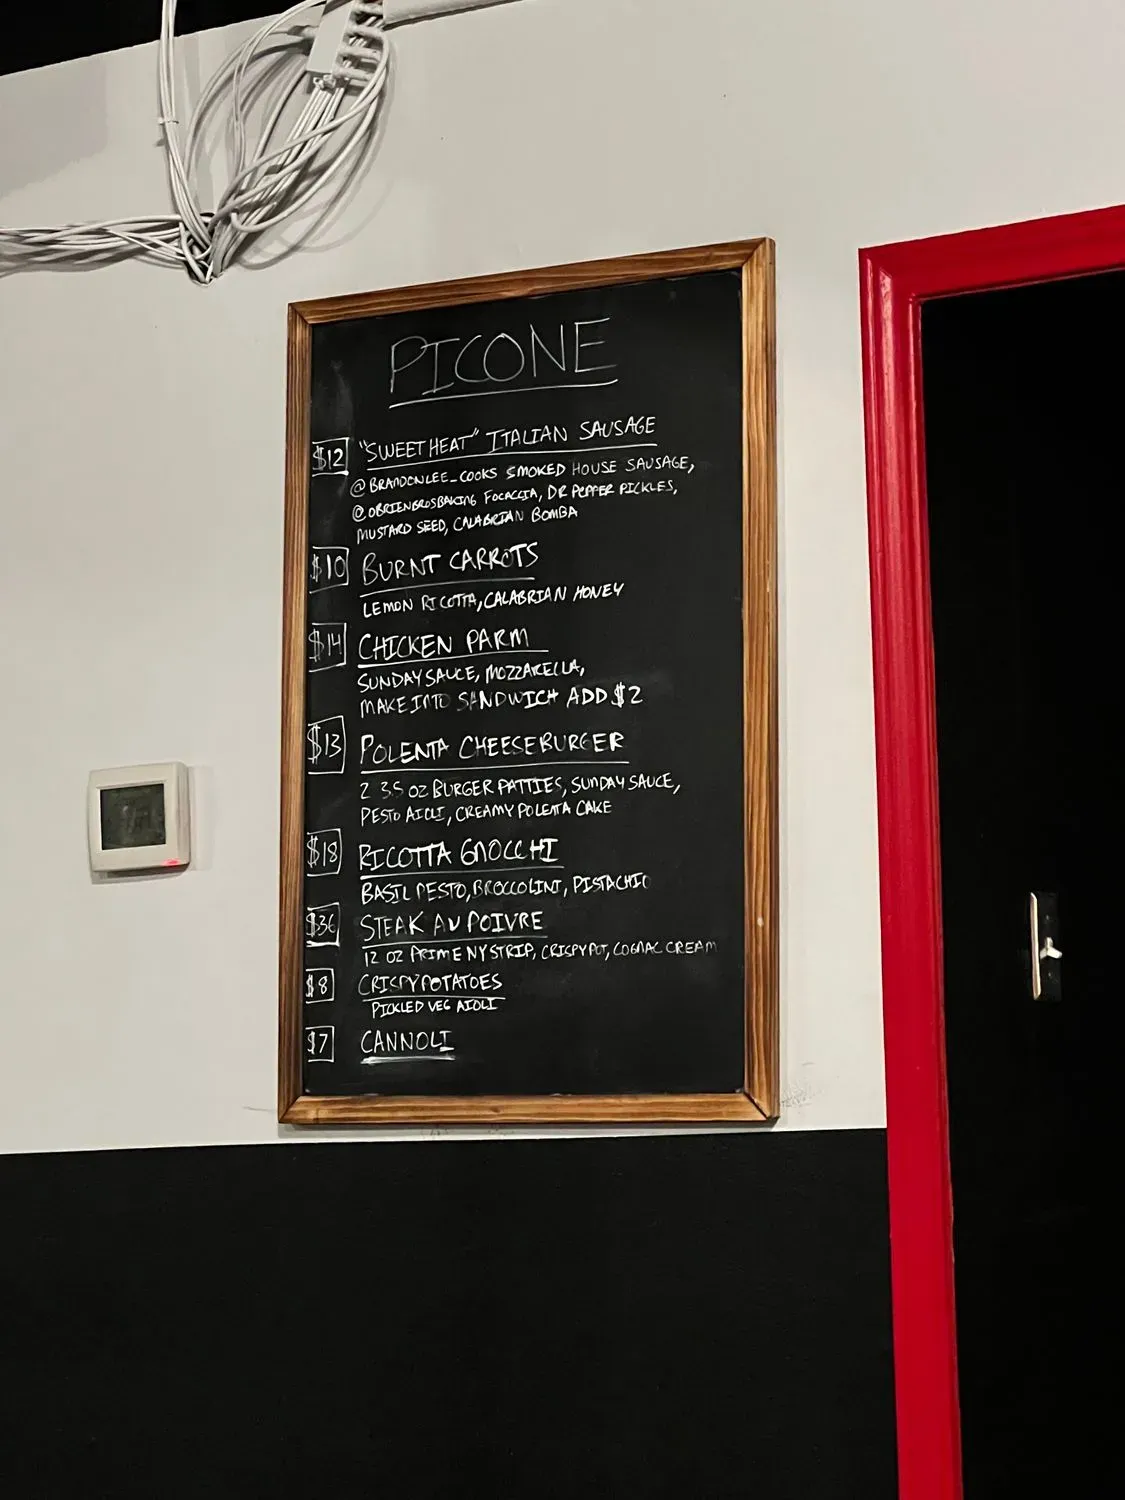 PICONE
$12 "SWEET HEAT" ITALIAN SAUSAGE
@BRANDONLEE_COOKS SMOKED HOUSE SAUSAGE,
@OBRIENBROSBAKING FOCACCIA, DR PEPPER PICKLES,
MUSTARD SEED, CALABRIAN BOMBA
$10 BURNT CARROTS
LEMON RICOTTA, CALABRIAN HONEY
$14 CHICKEN PARM
SUNDAY SAUCE, MOZZARELLA,
MAKE INTO SANDWICH ADD $2
$13 POLENTA CHEESEBURGER
2 3.5 OZ BURGER PATTIES, SUNDAY SAUCE,
PESTO AIOLI, CREAMY POLENTA CAKE
$18 RICOTTA GNOCCHI
BASIL PESTO, BROCCOLINI, PISTACHIO
$36 STEAK AU POIVRE
12 OZ PRIME NY STRIP, CRISPY POT, COGNAC CREAM
$8 CRISPY POTATOES
PICKLED VEG AIOLI
$7 CANNOLI